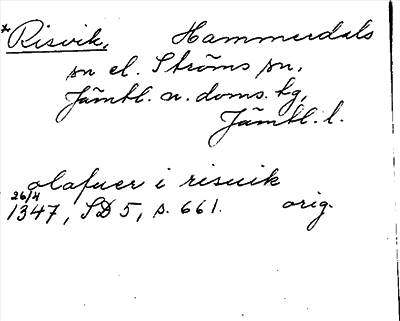 *Risvik, Hammerdals
sn el. Ströms sn,
Jämtl. n. doms. tg,
Jämtl. l.
olafuer i risuik
26/4
1347, SD 5, s. 661. orig.